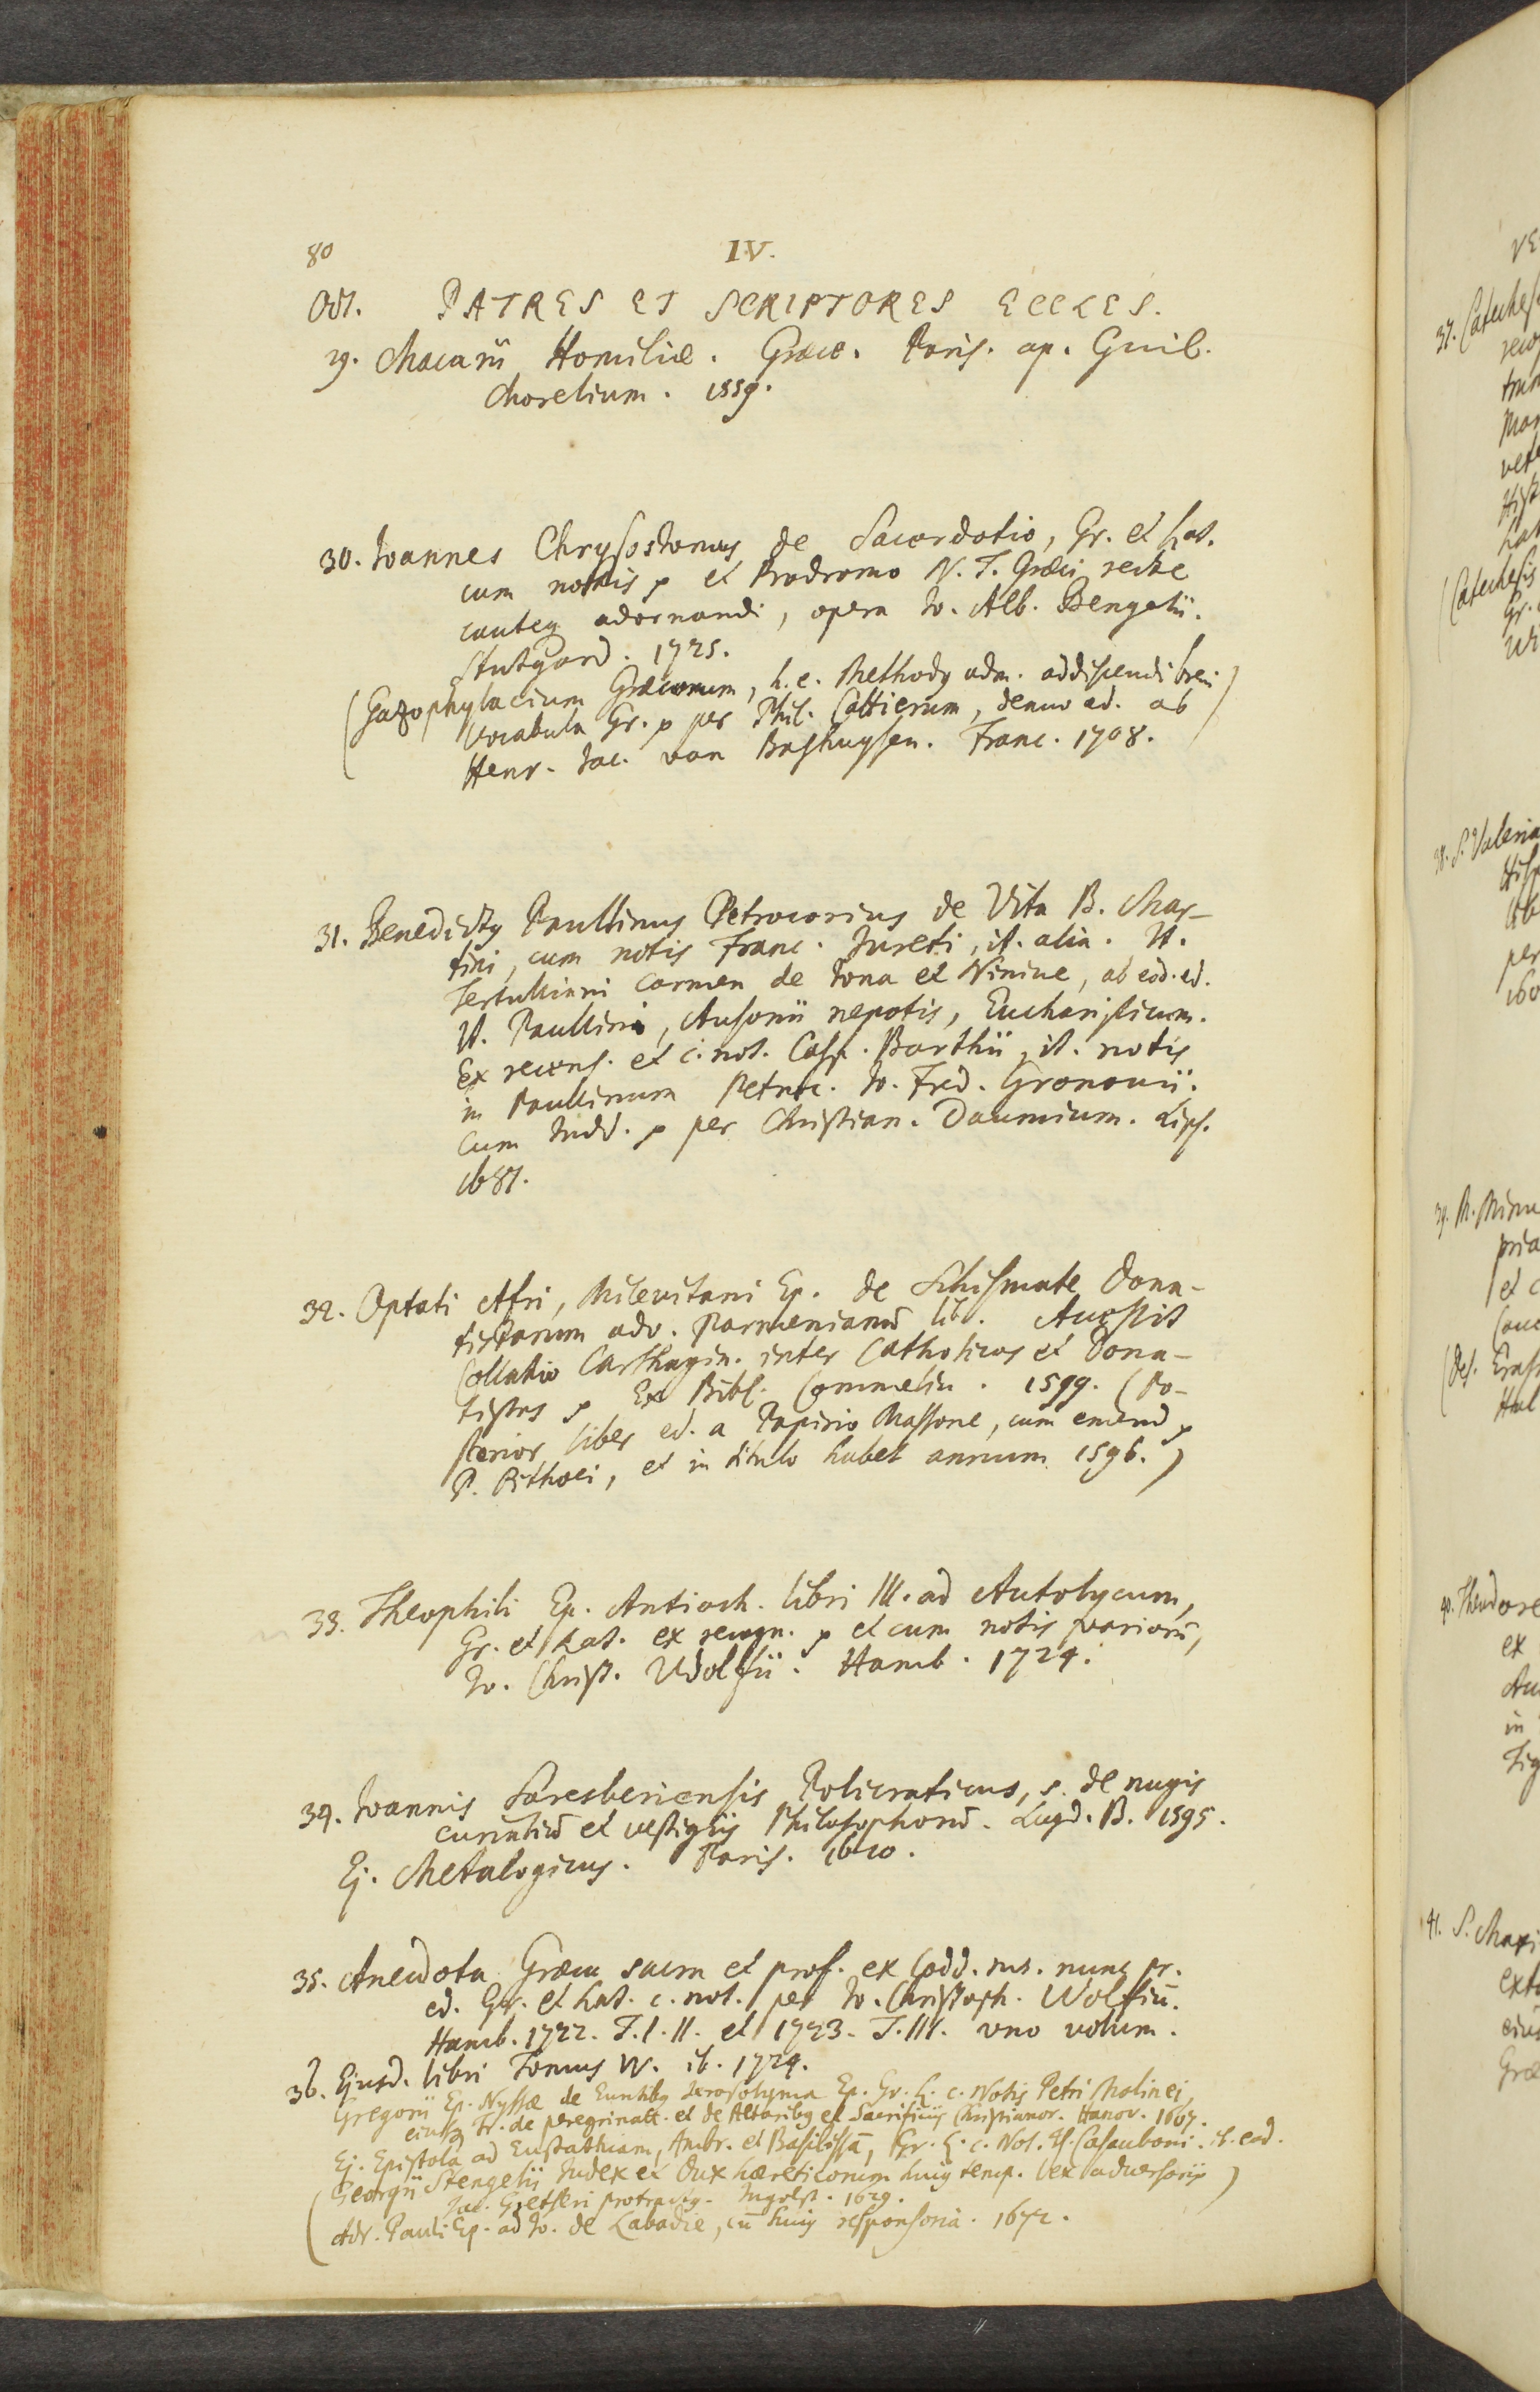 80
IV.
Oct. PATRES ET SCRIPTORES ECCLES.
29. Macarii Homiliæ. Græce. Paris. ap. Guil.
Morelium. 1559.
30. Ioannes Chrysostomus de Sacerdotio, Gr. et Lat.
cum notis p et Prodromo N. T. Græci recte
cauteq adornandi, opera Io. Alb. Bengelii.
Stutgard. 1725.
(Gazophylacium Græcorum, h. e. Methodus adm. addiscendi brevi
vocabula Gr. p per Phil. Cattierum, denuo ed. ab
Henr. Iac. van Bashuysen. Franc. 1708.)
31. Benedictus Paullinus Petrocorius de Vita B. Mar-
tini, cum notis Franc. Iureti, it. alia. It.
Tertulliani Carmen de Iona et Ninive, ab eod. ed.
It. Paullini, Ausonii nepotis, Eucharisticum.
Ex recens. et c. not. Casp. Barthii, it. notis
in Paullinum Petroc. Io. Fred. Gronovii.
Cum Indd. p per Christian. Daumium. Lips.
1681.
32. Optati Afri, Milevitani Ep. de Schismate Dona-
tistarum adv. Parmenianū lib. Accessit
Collatio Carthagin. inter Catholicos et Dona-
tistas p Ex Bibl. Commelin. 1599. (Po-
sterior liber ed. a Papirio Massone, cum emend p
P. Pithoei, et in titulo habet annum 1596.)
33. Theophili Ep. Antioch. libri III. ad Autolycum,
Gr. et Lat. ex recogn. p et cum notis variorū,
Io. Christ. Wolfii. Hamb. 1724.
34. Ioannis Saresberiensis Policraticus, s. de nugis
curialiū et vestigiis Philosophorū. Lugd. B. 1595.
Ej. Metalogicus. Paris. 1610.
35. Anecdota Græca sacra et prof. ex Codd. ms. nunc pr.
ed. Gr. et Lat. c. not. per Io. Christoph. Wolfiū.
Hamb. 1722. T. I. II. et 1723. T. III. uno volum.
36. Ejusd. libri Tomus IV. ib. 1724.
Gregorii Ep. Nyssæ de Euntibus Ierosolyma Ep. Gr. L. c. Notis Petri Molinei,
eiusq Tr. de peregrinatt. et de Altaribus et Sacrificiis Christianor. Hanov. 1607.
Ej. Epistola ad Eustathiam, Ambr. et Basilissā, Gr. L. c. Not. Is. Casauboni. ib. eod.
(Georgii Stengelii Index et Dux hæreticorum huius temp. vex adversariis
Iac. Gretseri protractus. Ingolst. 1629.)
Adr. Pauli Ep. ad Io. de Labadie, cū huius responsoria. 1672.